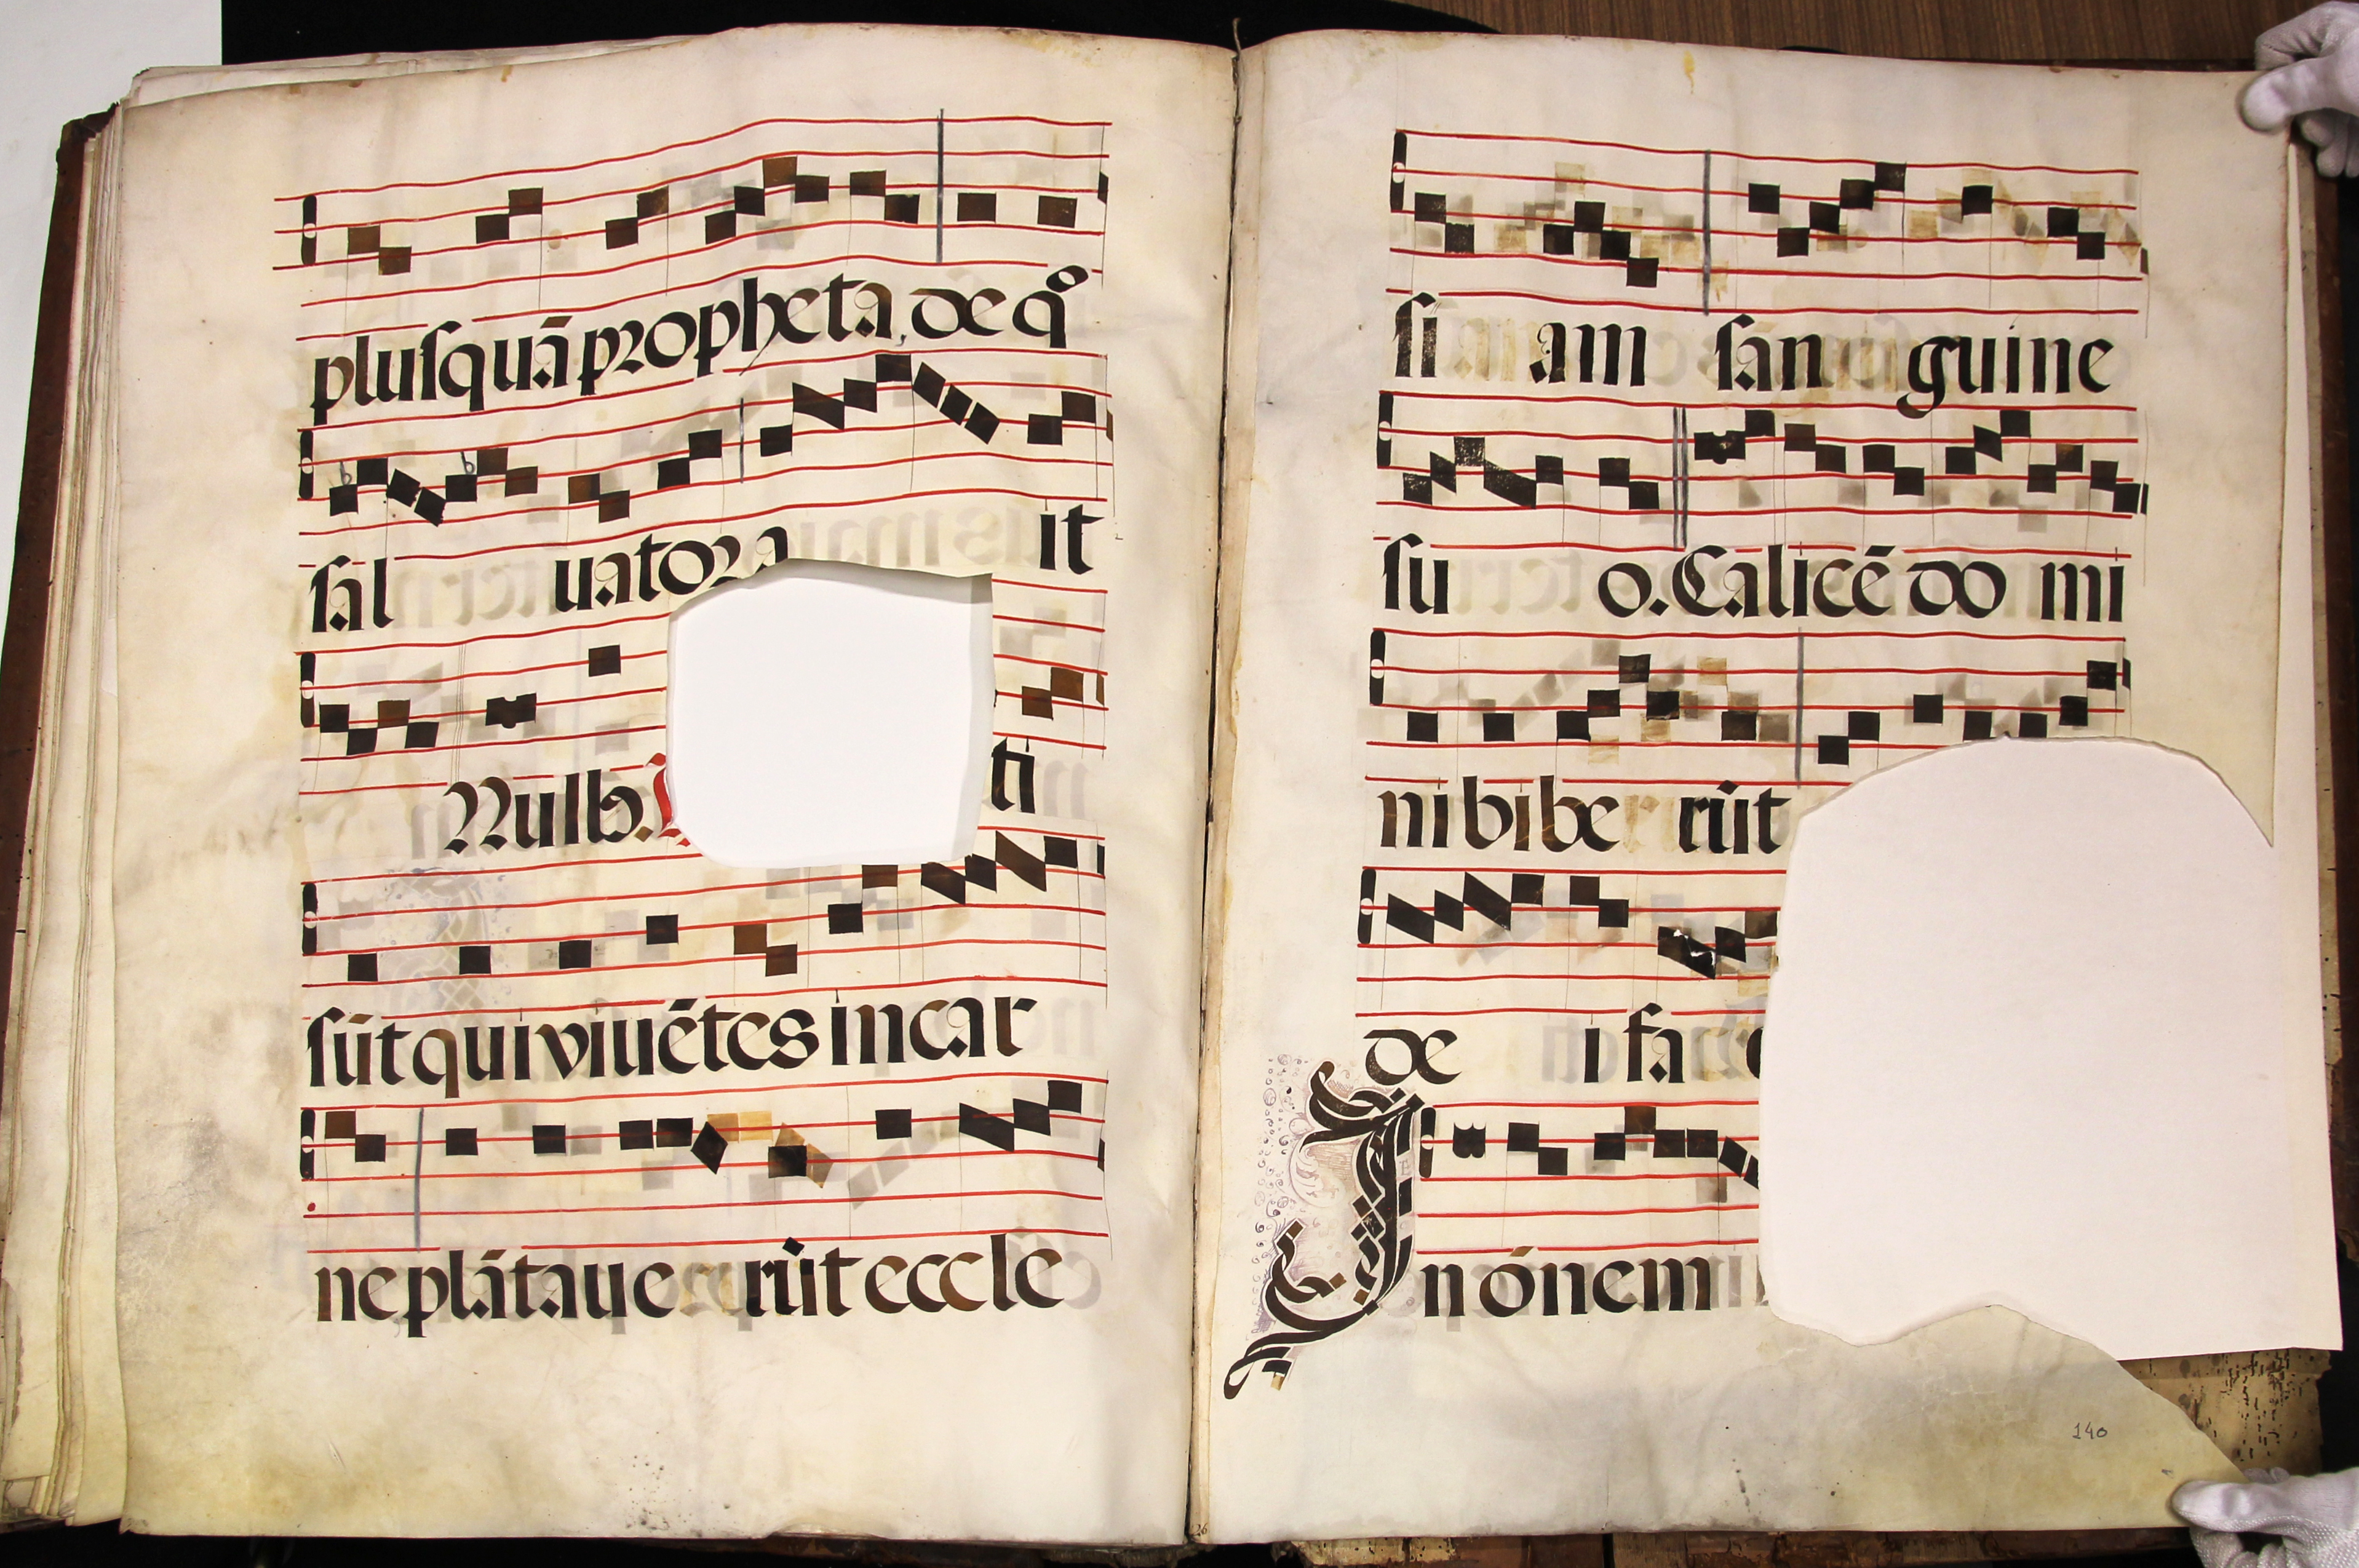 pluſquā propheta. de qͦ
ſal uatora it
Nulb. ti
ſūt qui viuētes in car
ne plātaue rūt eccle
ſi am ſan guine
ſu o. Calicē do mi
ni bibe rūt
de i fa
In ónem
140